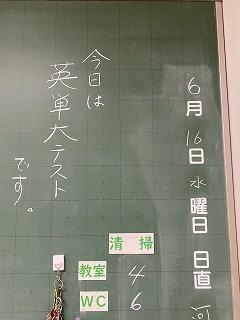 6月16日水曜日 日直 河
今日は
英単大テスト
です。
清掃
教室 4
WC 6